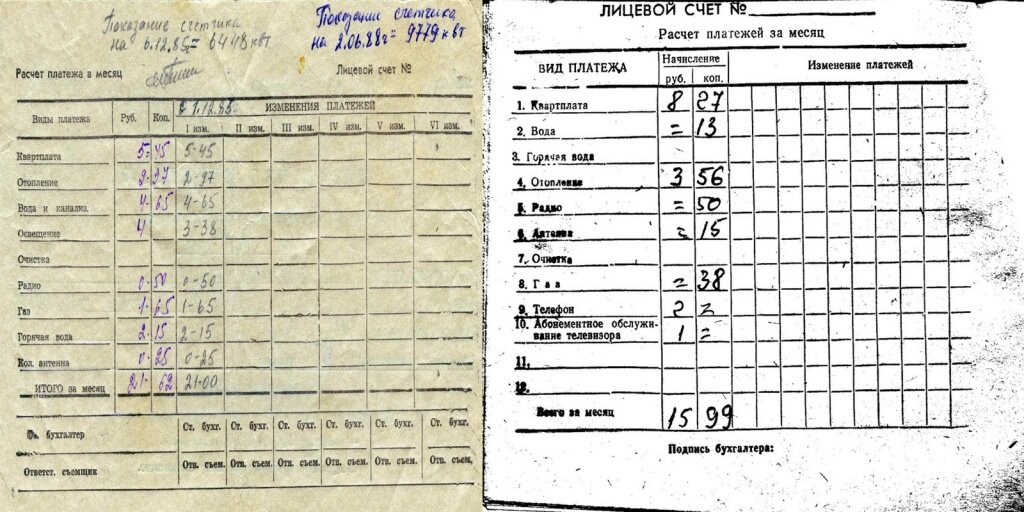 Показание счетчика
на 6.12.85г= 6448 квт
Показании счетчика
на 2.06.88г= 9779 квт
Расчет платежа в месяц
Лицевой счет №
Виды платежа Руб. Коп. С 1.12.85г. ИЗМЕНЕНИЯ ПЛАТЕЖЕЙ
I изм. II изм. III изм. IV изм. V изм. VI изм.
Квартплата 5-45 5-45
Отопление 2-97 2-97
Вода и канализ. 4-65 4-65
Освещение 4 3-38
Очистка
Радио 0-50 0-50
Газ 1-65 1-65
Горячая вода 2-15 2-15
Кол. антенна 0-25 0-25
ИТОГО за месяц 21-62 21-00
бухгалтер Ст. бухг. Ст. бухг. Ст. бухг. Ст. бухг. Ст. бухг. Ст. бухг.
Ответст. съемщик Отв. съем. Отв. съем. Отв. съем. Отв. съем. Отв. съем. Отв. съем.
ЛИЦЕВОЙ СЧЕТ №
Расчет платежей за месяц
ВИД ПЛАТЕЖА Начисление Изменение платежей
руб. коп.
1. Квартплата 8 27
2. Вода = 13
3. Горячая вода
4. Отопление 3 56
5. Радио = 50
6. Антенна = 15
7. Очистка
8. Газ = 38
9. Телефон 2 =
10. Абонементное обслужи-
вание телевизора 1 =
11.
12.
Всего за месяц 15 99
Подпись бухгалтера: